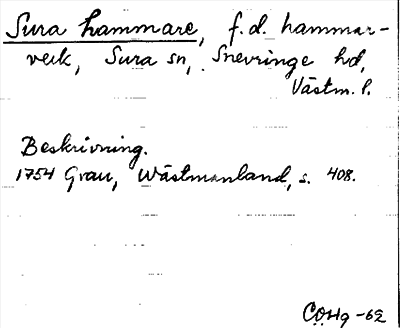 Sura hammare, f.d. hammar-
verk, Sura sn, Snevringe hd,
Västm. l.
Beskrivning.
1754 Grau, Wästmanland, s. 408.
COHg -62